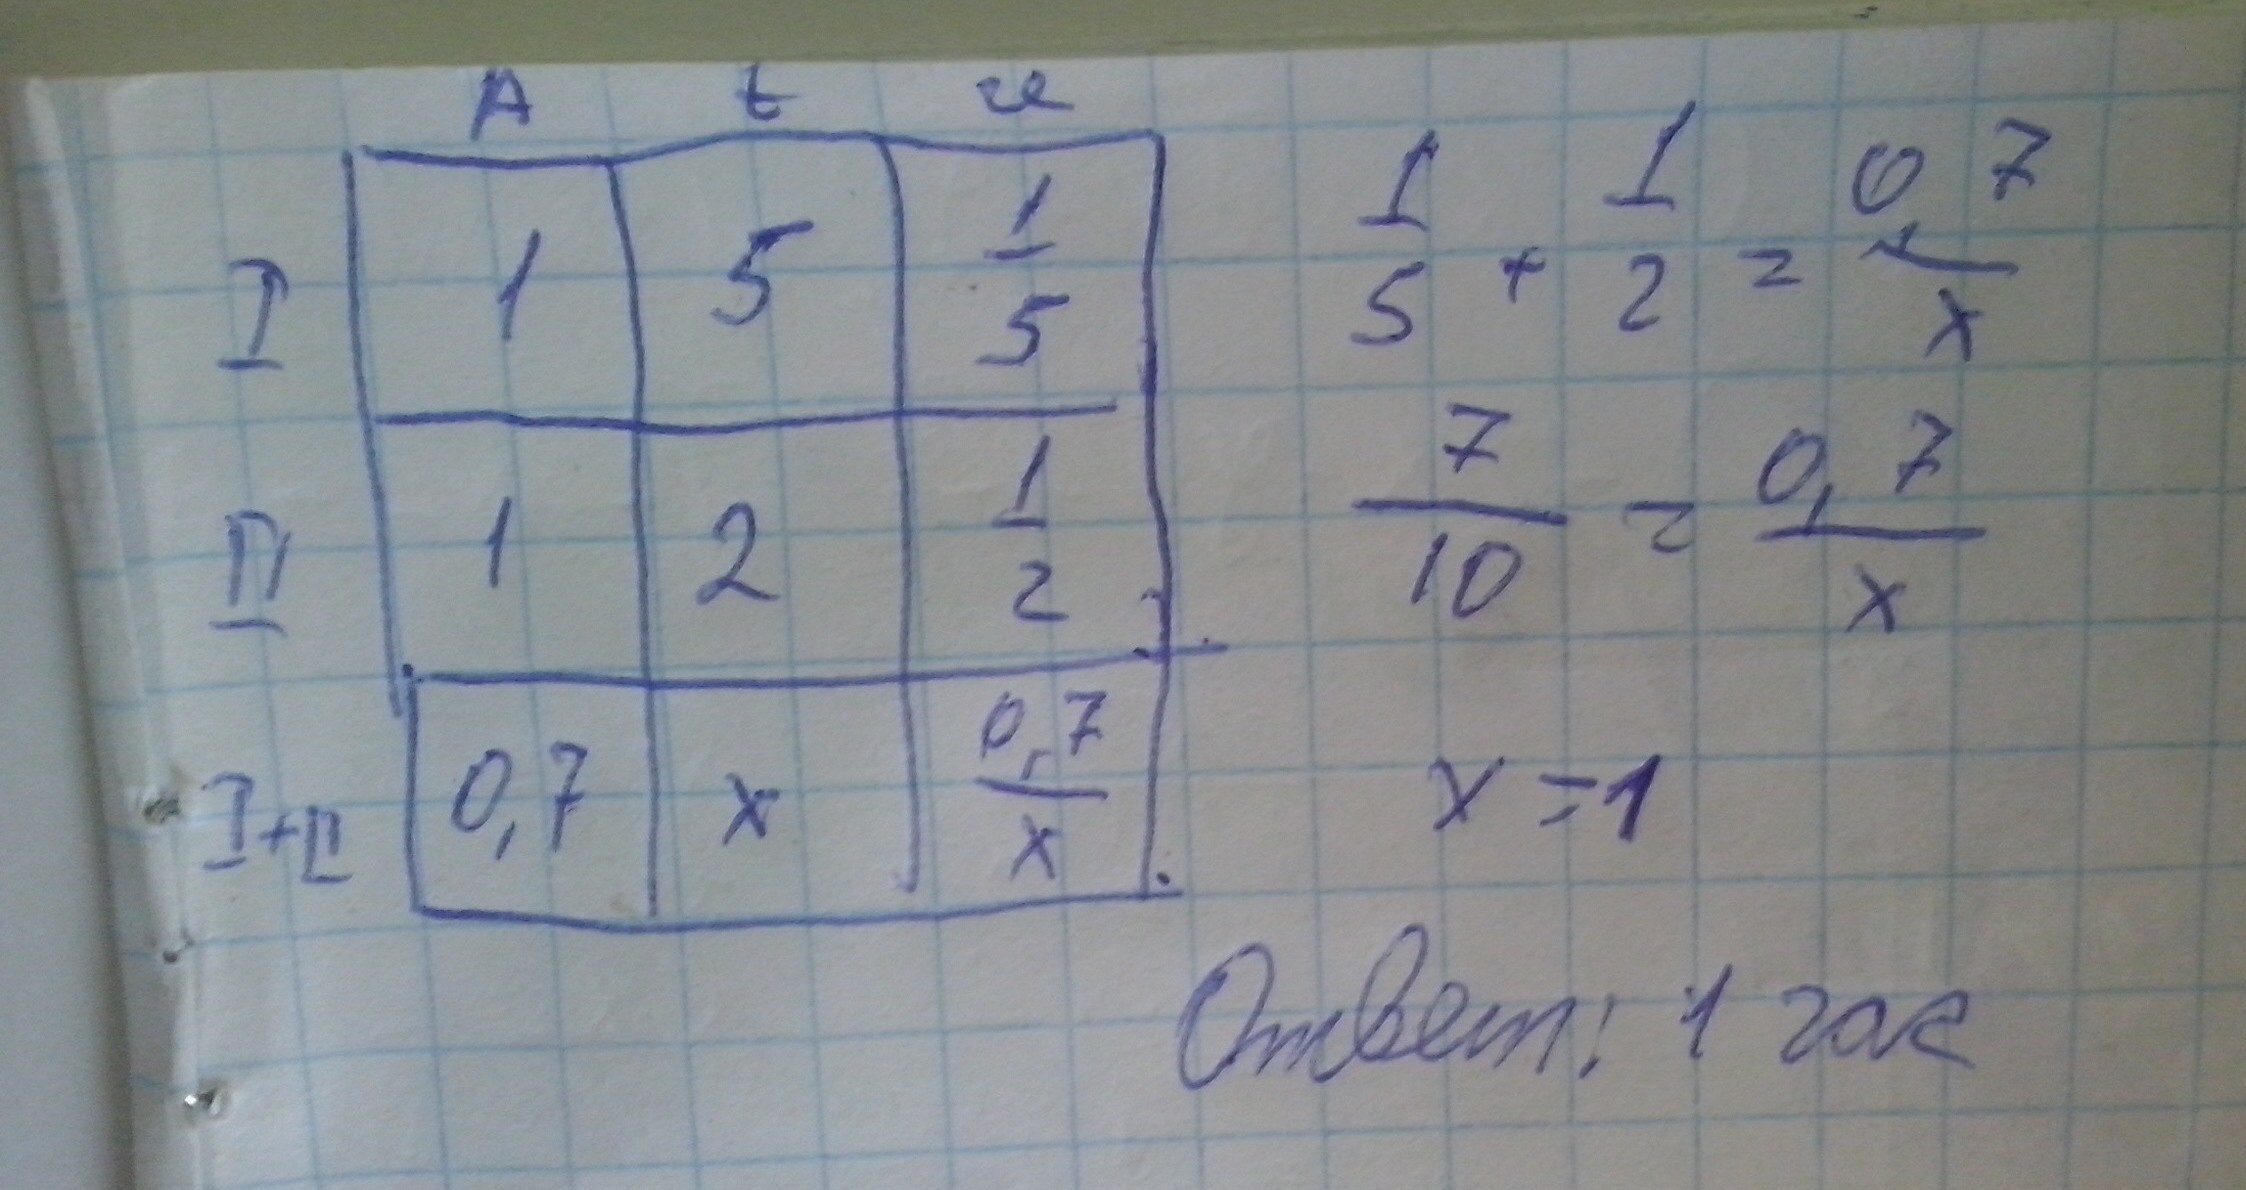 A t v
I 1 5 1/5
II 1 2 1/2
I+II 0,7 x 0,7/x
1/5 + 1/2 = 0,7/x
7/10 = 0,7/x
x = 1
Ответ: 1 час